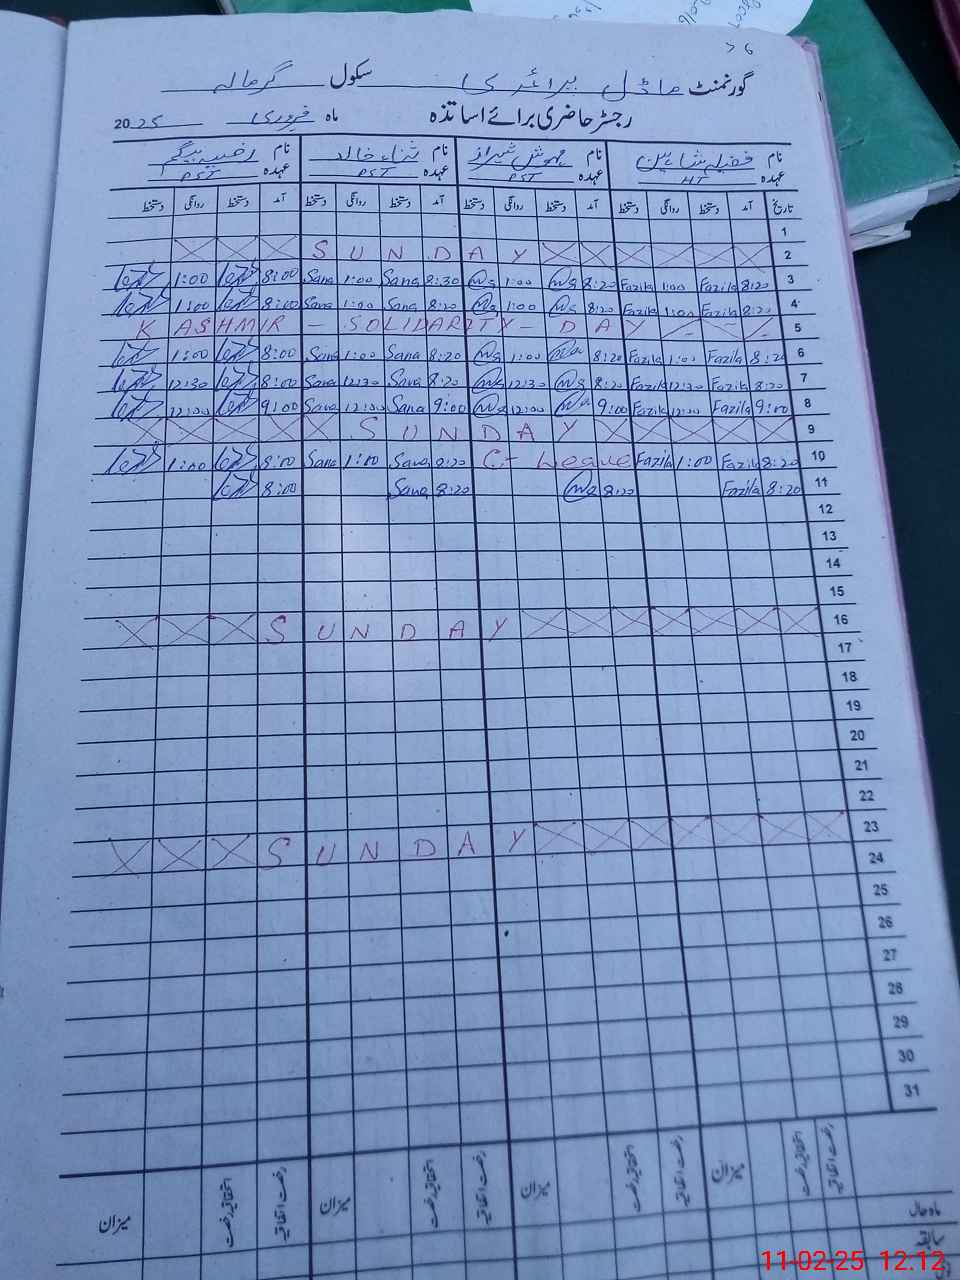 76
گورنمنٹ ماڈل پرائمری سکول گرمالہ
رجسٹر حاضری برائے اساتذہ ماہ فروری 2025
نام فضیلہ شاہین نام مہوش شیراز نام ثناء خالد نام رضیہ بیگم
عہدہ HT عہدہ PST عہدہ PST عہدہ PST
تاریخ آمد دستخط روانگی دستخط آمد دستخط روانگی دستخط آمد دستخط روانگی دستخط آمد دستخط روانگی دستخط
1
SUNDAY 2
1:00 8:00 Sana 1:00 Sana 8:30 1:00 8:20 Fazila 1:00 Fazila 8:20 3
1:00 8:00 Sana 1:00 Sana 8:20 1:00 8:20 Fazila 1:00 Fazila 8:20 4
KASHMIR - SOLIDARITY - DAY 5
1:00 8:00 Sana 1:00 Sana 8:20 1:00 8:20 Fazila 1:00 Fazila 8:20 6
12:30 8:00 Sana 12:30 Sana 8:20 12:30 8:20 Fazila 12:30 Fazila 8:20 7
12:00 9:00 Sana 12:00 Sana 9:00 12:00 9:00 Fazila 12:00 Fazila 9:00 8
SUNDAY 9
1:00 8:00 Sana 1:00 Sana 8:20 C- Leave Fazila 1:00 Fazila 8:20 10
8:00 Sana 8:20 8:20 Fazila 8:20 11
12
13
14
15
SUNDAY 16
17
18
19
20
21
22
SUNDAY 23
24
25
26
27
28
29
30
31
رخصت اتفاقیہ استحقاقیہ رخصت میزان رخصت اتفاقیہ استحقاقیہ رخصت میزان رخصت اتفاقیہ استحقاقیہ رخصت میزان رخصت اتفاقیہ استحقاقیہ رخصت میزان
ماہ حال
سابقہ
11-02-25 12:12